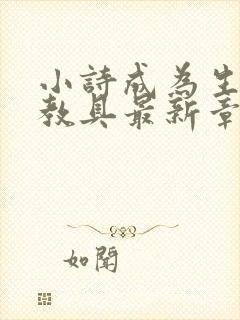 小詩成為生
教具最新章
如聞